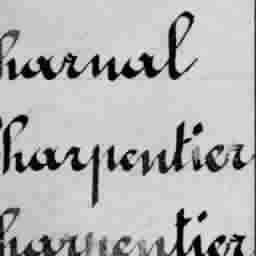 harnal
harpentier
harpentier